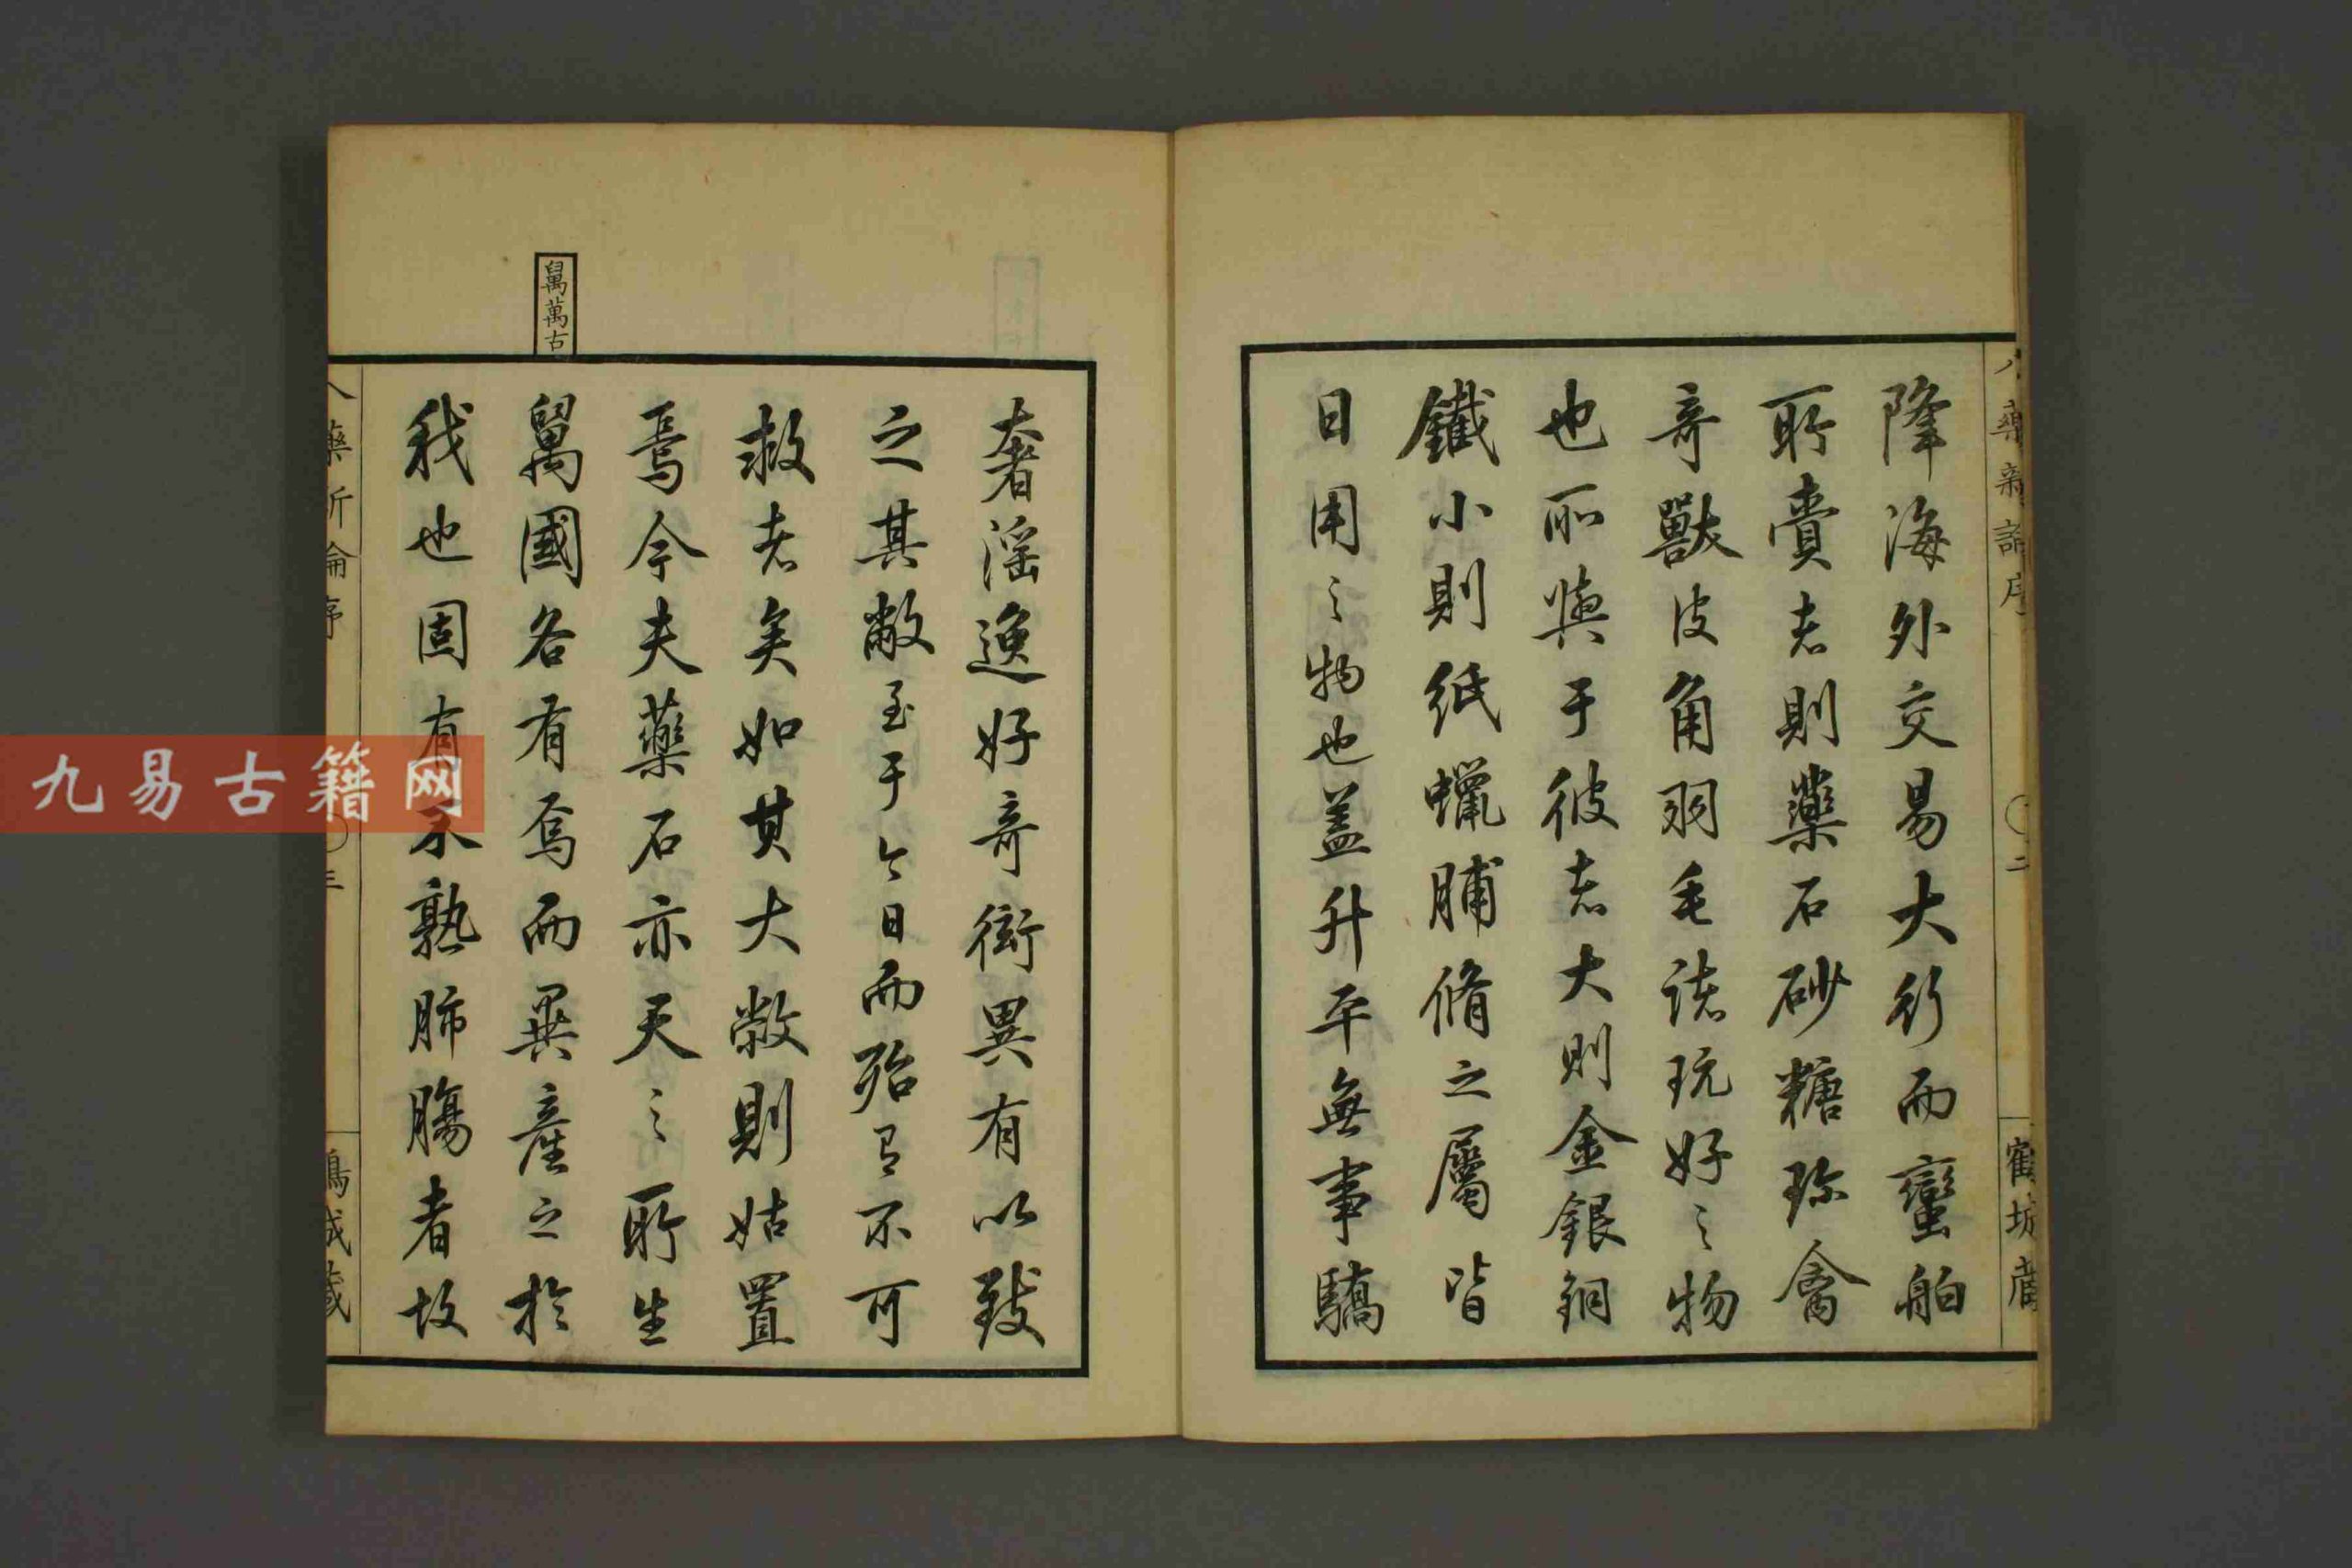 降海外交易大行而蠻舶
所賣者則藥石砂糖珎禽
奇獸皮角羽毛諸玩好之物
也而與于彼者大則金銀銅
鐵小則紙蠟脯脩之屬皆
日用之物也蓋升平無事驕
奢淫逸好奇衒異有以致
之其敝至于今日而殆有不可
救者矣如其大敝則姑置
焉今夫藥石亦天之所生
萬國各有焉而異產之於
我也固有不熟肺腸者故
萬萬古
藥新論序
二
鶴城藏
三
九易古籍网